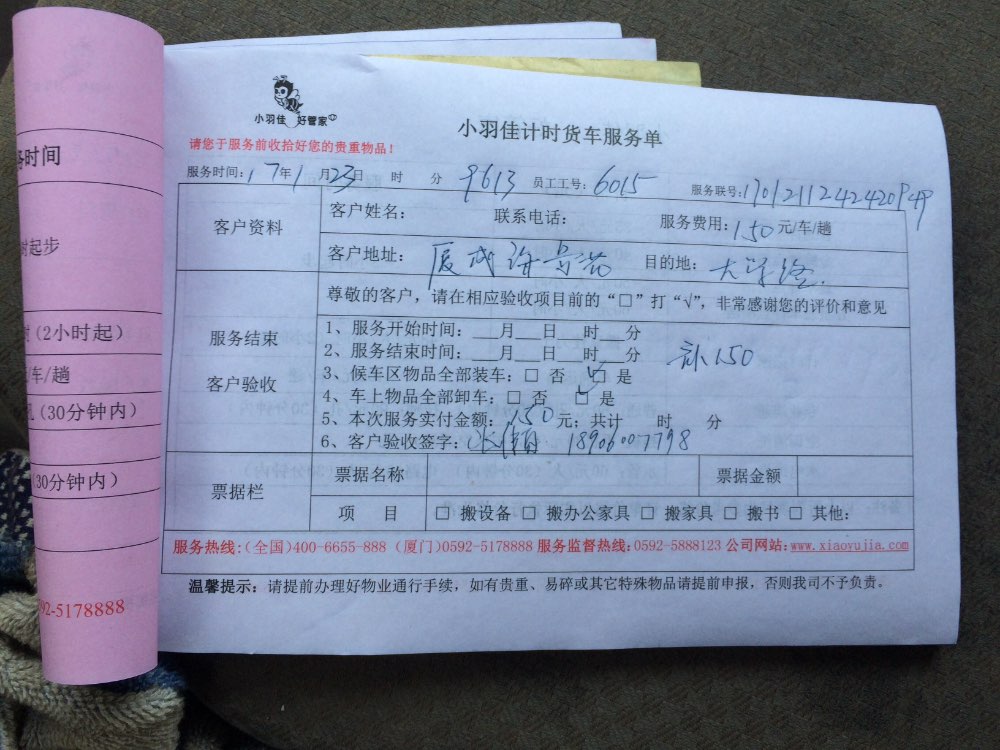 务时间
时起步
(2小时起)
/车/趟
(30分钟内)
(30分钟内)
92-5178888
小羽佳 好管家
小羽佳计时货车服务单
请您于服务前收拾好您的贵重物品！
服务时间：17年1月23日 时 分 9613 员工工号：6015 服务联号：
客户资料
客户姓名： 联系电话： 服务费用：150元/车/趟
客户地址： 目的地：
尊敬的客户，请在相应验收项目前的“□”打“√”，非常感谢您的评价和意见
服务结束
客户验收
1、服务开始时间：___月___日___时___分
2、服务结束时间：___月___日___时___分 150
3、候车区物品全部装车：□ 否 □ 是
4、车上物品全部卸车：□ 否 □ 是
5、本次服务实付金额：150元；共计 时 分
6、客户验收签字： 18906007798
票据栏
票据名称 票据金额
项 目 □ 搬设备 □ 搬办公家具 □ 搬家具 □ 搬书 □ 其他：
服务热线：(全国)400-6655-888 (厦门)0592-5178888 服务监督热线：0592-5888123 公司网站：www.xiaoyujia.com
温馨提示：请提前办理好物业通行手续，如有贵重、易碎或其它特殊物品请提前申报，否则我司不予负责。